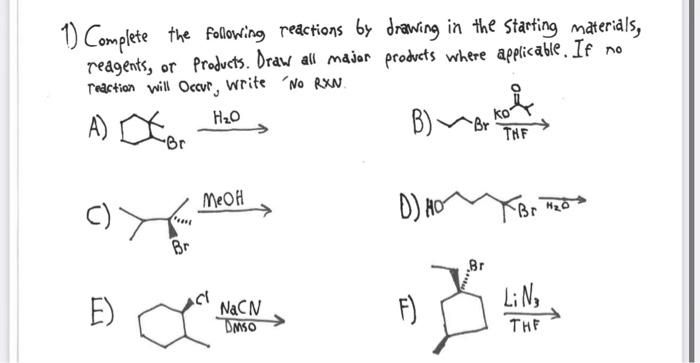 1) Complete the following reactions by drawing in the starting materials,
reagents, or Products. Draw all major products where applicable. If no
reaction will Occur, write "No RXN.
A) Br H₂O
B) Br KO O THF
C) Br MeOH
D) HO Br H₂O
E) Cl NaCN DMSO
F) Br LiN₃ THF